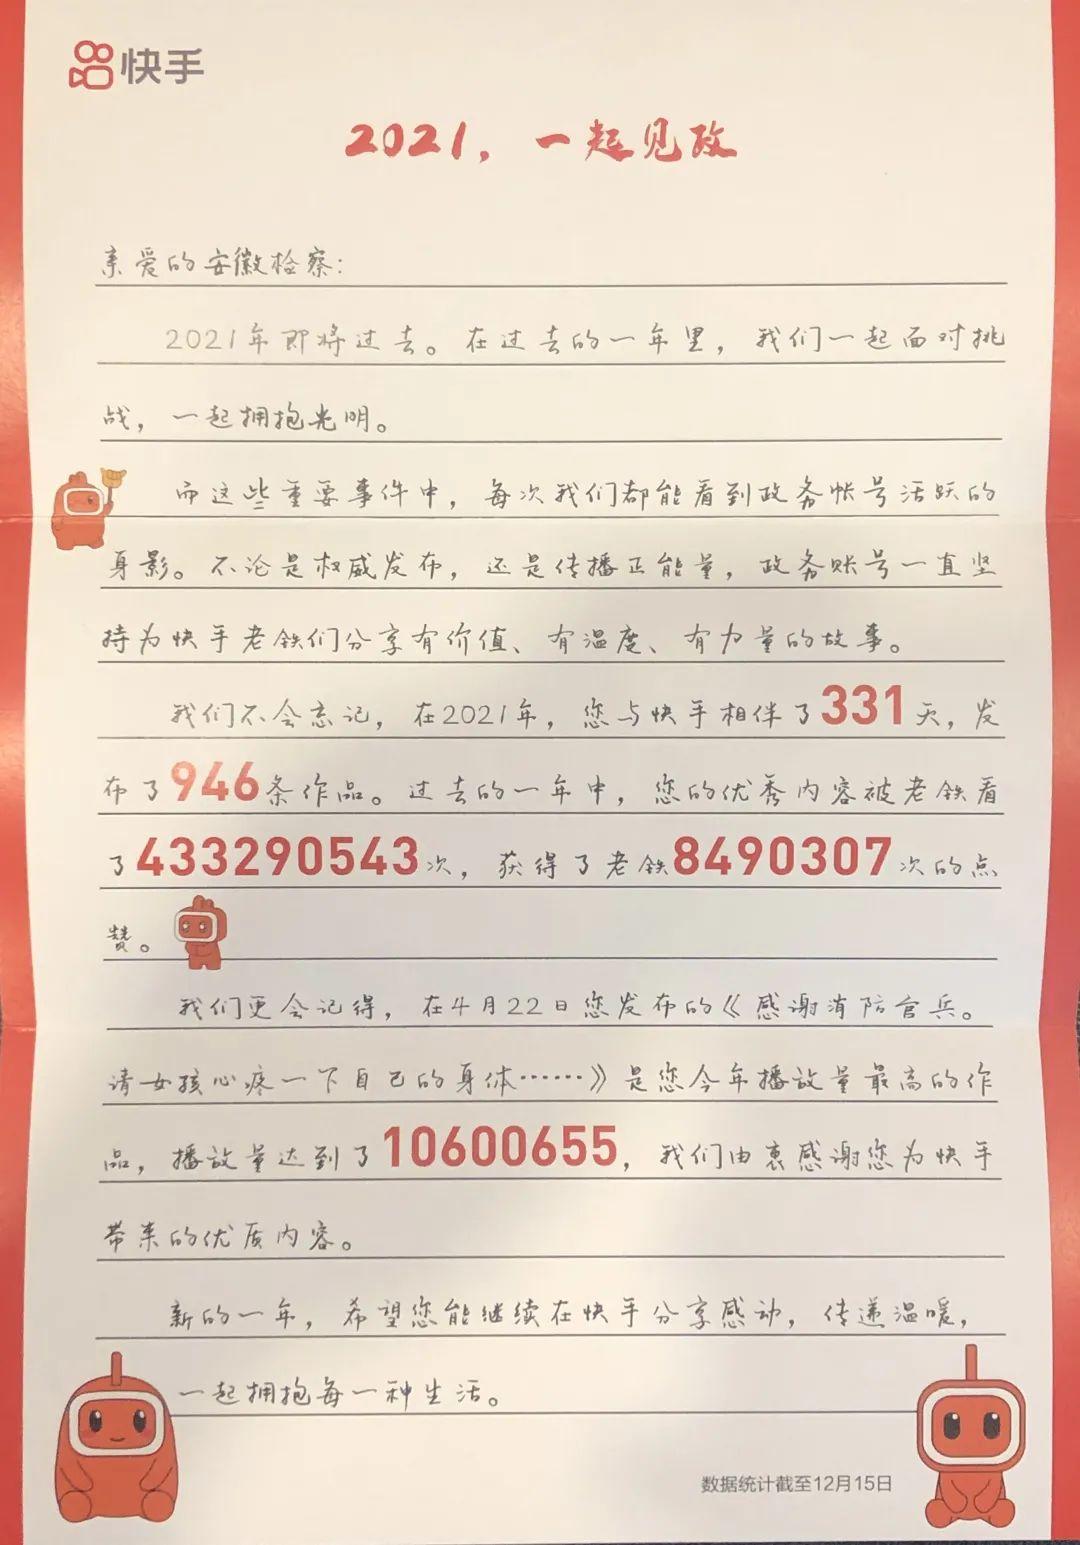 快手
2021，一起见政
亲爱的安徽检察：
2021年即将过去。在过去的一年里，我们一起面对挑
战，一起拥抱光明。
而这些重要事件中，每次我们都能看到政务帐号活跃的
身影。不论是权威发布，还是传播正能量，政务账号一直坚
持为快手老铁们分享有价值、有温度、有力量的故事。
我们不会忘记，在2021年，您与快手相伴了331天，发
布了946条作品。过去的一年中，您的优秀内容被老铁看
了433290543次，获得了老铁8490307次的点
赞。
我们更会记得，在4月22日您发布的《感谢消防官兵。
请女孩心疼一下自己的身体……》是您今年播放量最高的作
品，播放量达到了10600655，我们由衷感谢您为快手
带来的优质内容。
新的一年，希望您能继续在快手分享感动，传递温暖，
一起拥抱每一种生活。
数据统计截至12月15日